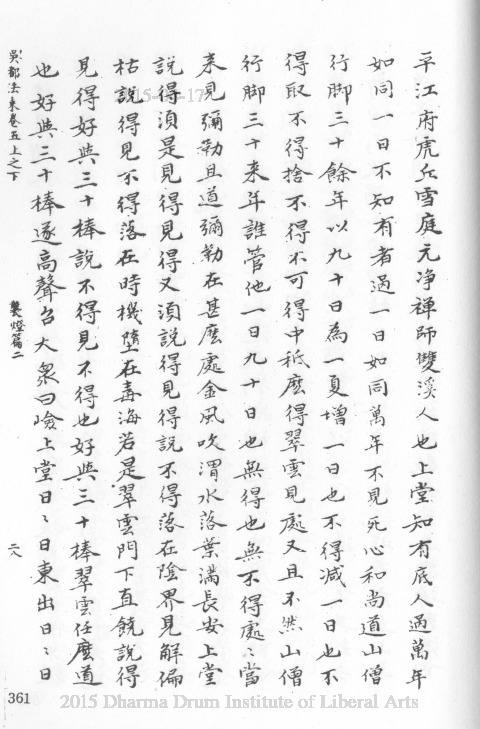 平江府虎丘雪庭元净禅師雙溪人也上堂知有底人過萬年
如同一日不知有者過一日如同萬年不見死心和尚道山僧
行脚三十餘年以九十日為一夏增一日也不得減一日也不
得取不得捨不得不可得中秖麽得翠雲見處又且不然山僧
行脚三十来年誰管他一日九十日也無得也無不得處〻當
来見彌勒且道彌勒在甚麽處金風吹渭水落葉滿長安上堂
說得須是見得見得又須說得見得說不得落在陰界見解偏
枯說得見不得落在時機墮在毒海若是翠雲門下直饒說得
見得好與三十棒說不得見不得也好與三十棒翠雲任麽道
也好與三十棒遂高聲召大衆曰嶮上堂日〻日東出日〻日
吳都法乘卷五上之下
襲燈篇二
二八
361
2015 Dharma Drum Institute of Liberal Arts